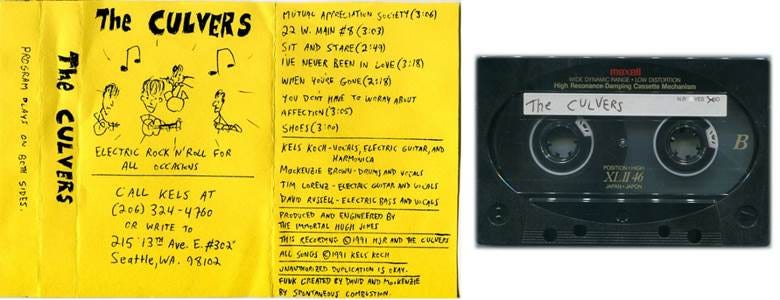 The CULVERS
PROGRAM PLAYS ON BOTH SIDES.
The CULVERS
ELECTRIC ROCK 'N' ROLL FOR
ALL OCCASIONS
CALL KELS AT
(206) 324-4760
OR WRITE TO
215 13TH Ave. E. #302"
Seattle, WA. 98102
MUTUAL APPRECIATION SOCIETY (3:06)
22 W. MAIN #8 (3:03)
SIT AND STARE (2:49)
I'VE NEVER BEEN IN LOVE (3:18)
WHEN YOU'RE GONE (2:18)
YOU DON'T HAVE TO WORRY ABOUT
AFFECTION (3:05)
SHOES (3:00)
KELS KOCH-VOCALS, ELECTRIC GUITAR, AND
HARMONICA
MACKENZIE BROWN-DRUMS AND VOCALS
TIM LORENZ-ELECTRIC GUITAR AND VOCALS
DAVID RUSSELL-ELECTRIC BASS AND VOCALS
PRODUCED AND ENGINEERED BY
THE IMMORTAL HUGH JONES
THIS RECORDING ©1991 HJR AND THE CULVERS
ALL SONGS ©1991 KELS KOCH
UNAUTHORIZED DUPLICATION IS OKAY.
FUNK CREATED BY DAVID AND MACKENZIE
BY SPONTANEOUS COMBUSTION.
maxell
WIDE DYNAMIC RANGE • LOW DISTORTION
High Resonance-Damping Cassette Mechanism
The CULVERS
B
POSITION • HIGH
XLII 46
JAPAN • JAPON